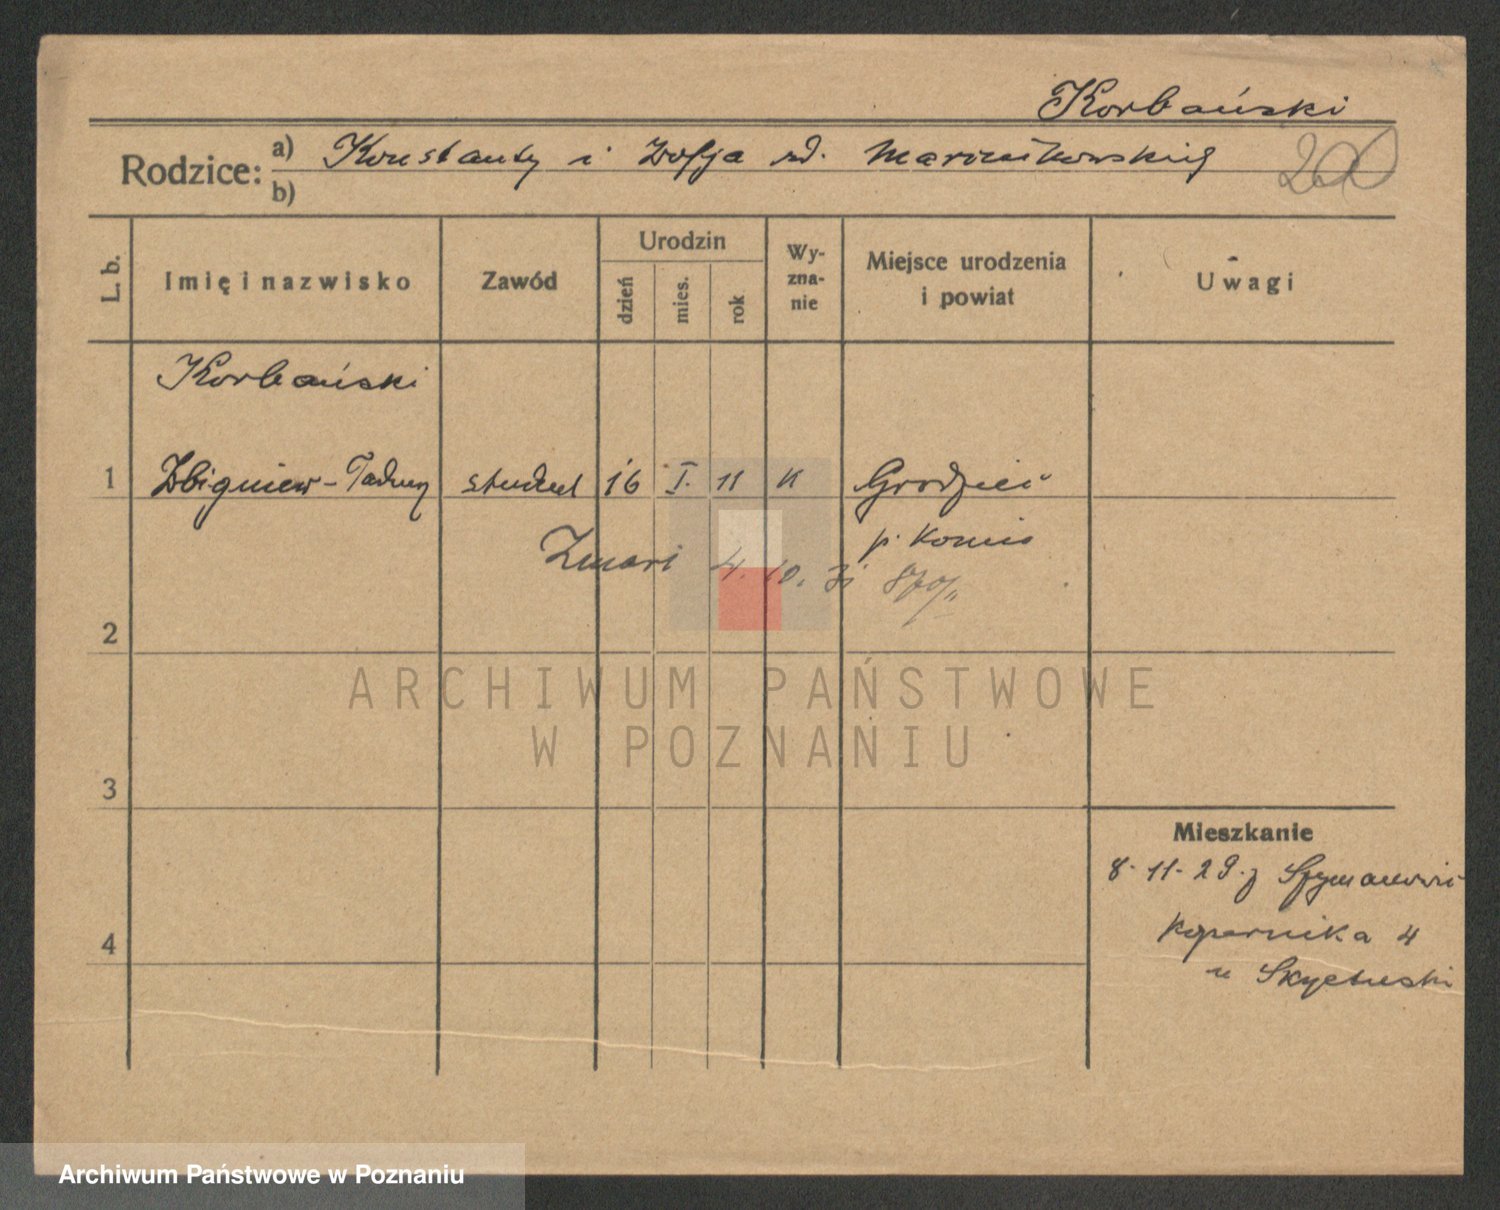 Korbański
Rodzice: a) Konstanty i Zofja zd. Marcinkowskiej
b)
200
L. b. Imię i nazwisko Zawód Urodzin dzień mies. rok Wy-zna-nie Miejsce urodzenia i powiat Uwagi
Korbański
1 Zbigniew-Tadeusz student 16 I. 11 k Grodziec
p. Konin
Zmarł 4. 10. 31
2
ARCHIWUM PAŃSTWOWE
W POZNANIU
3
Mieszkanie
8-11-29. z
Kopernika 4
4
u
Archiwum Państwowe w Poznaniu